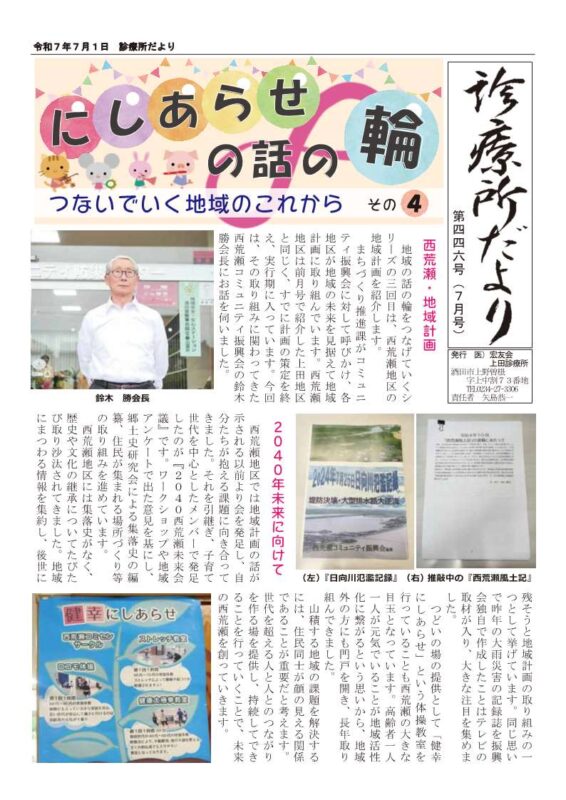 令和７年７月１日　診療所だより
診療所だより
第四四六号（７月号）
発行　医）宏友会
上田診療所
酒田市上野曽根
字上中割７３番地
TEL0234-27-3306
責任者　矢島恭一
にしあらせ
の話の輪
つないでいく地域のこれから　その４
西荒瀬・地域計画
地域の話の輪をつなげていくシ
リーズの三回目は、西荒瀬地区の
地域計画を紹介します。
まちづくり推進課がコミュニ
ティ振興会に対して呼びかけ、各
地区が地域の未来を見据えて地域
計画に取り組んでいます。西荒瀬
地区は前月号で紹介した上田地区
と同じく、すでに計画の策定を終
え、実行期に入っています。今回
は、その取り組みに関わってきた
西荒瀬コミュニティ振興会の鈴木
勝会長にお話を伺いました。
鈴木　勝会長
２０４０年未来に向けて
西荒瀬地区では地域計画の話が
示される以前より会を発足し、自
分たちが抱える課題に向き合って
きました。それを引継ぎ、子育て
世代を中心としたメンバーで発足
したのが『２０４０西荒瀬未来会
議』です。ワークショップや地域
アンケートで出た意見を基にし、
郷土史研究会による集落史の編
纂、住民が集まれる場所づくり等
の取り組みを進めています。
西荒瀬地区には集落史がなく、
歴史や文化の継承についてたびた
び取り沙汰されてきました。地域
にまつわる情報を集約し、後世に
2024年7月25日日向川氾濫記録
堤防決壊・大型排水路大逆流
西荒瀬コミュニティ振興会
（左）『日向川氾濫記録』（右）推敲中の『西荒瀬風土記』
残そうと地域計画の取り組みの一
つとして挙げています。同じ思い
で昨年の大雨災害の記録誌を振興
会独自で作成したことはテレビの
取材が入り、大きな注目を集めま
した。
つどいの場の提供として「健幸
にしあらせ」という体操教室を
行っていることも西荒瀬の大きな
目玉となっています。高齢者一人
一人が元気でいることが地域活性
化に繋がるという思いから、地域
外の方にも門戸を開き、長年取り
組んできました。
山積する地域の課題を解決する
には、住民同士が顔の見える関係
であることが重要だと考えます。
世代を超える人と人とのつながり
を作る場を提供し、持続してでき
ることを行っていくことで、未来
の西荒瀬を創っていきます。
健幸にしあらせ
西荒瀬コミセン
サークル
ストレッチ教室
ロコモ体操
健康太極拳教室